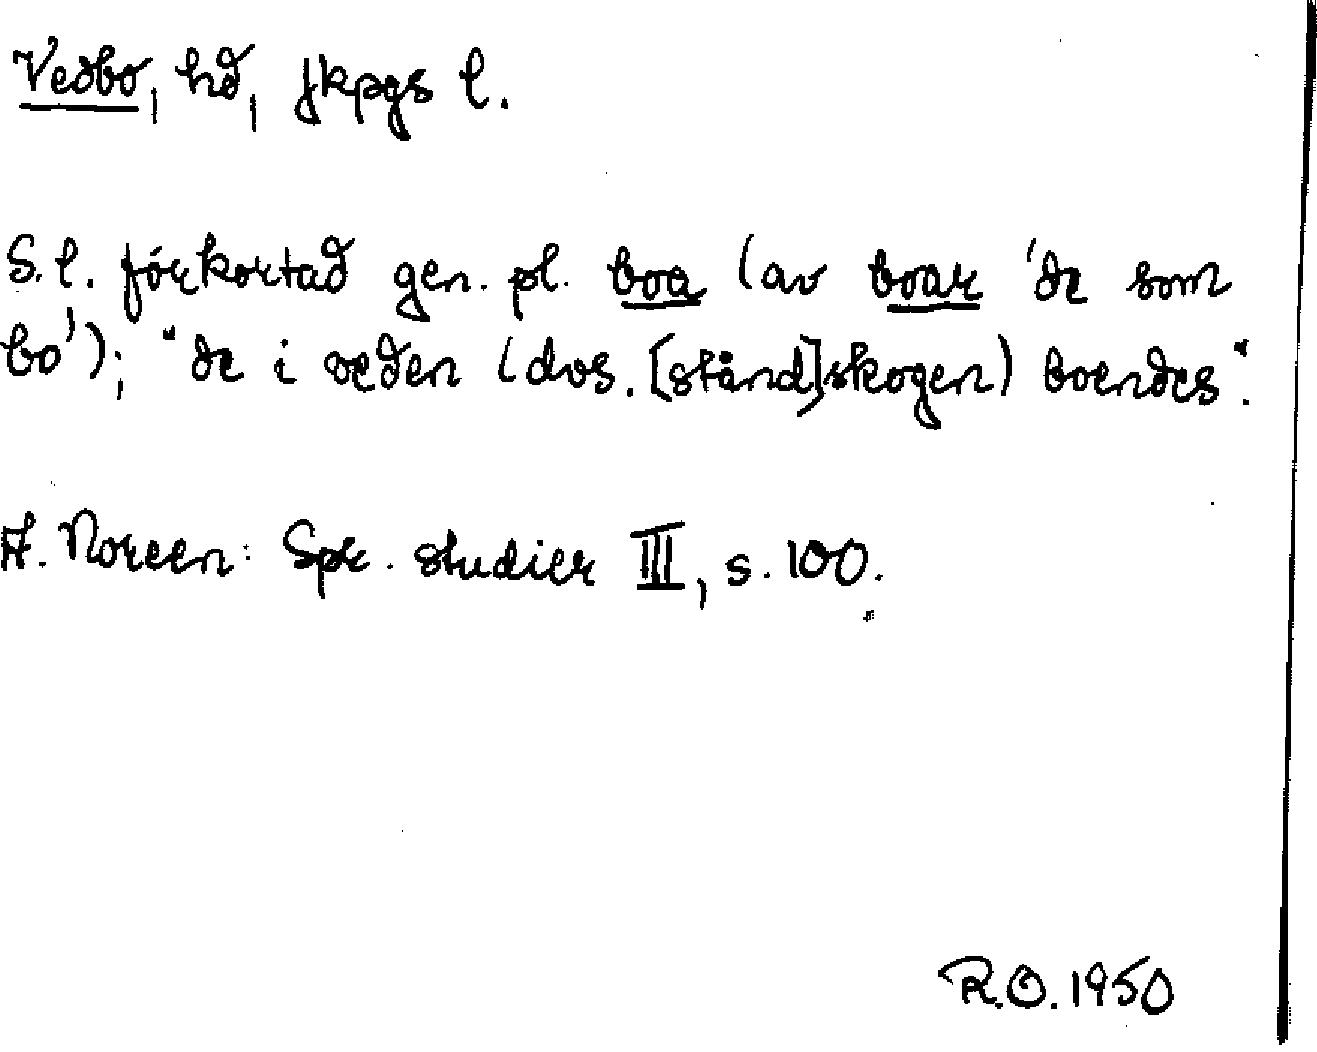 Vedbo, hd, Jkpgs l.
S. l. förkortad gen. pl. boa (av boar 'de som
bo'); "de i veden (dvs. [stånd]skogen) boendes".
A. Noreen: Spr. studier III, s. 100.
R.O. 1950